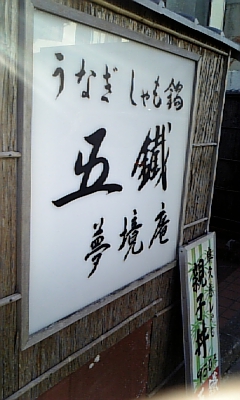 うなぎ しゃも鍋
五鐵
夢境庵
親子丼